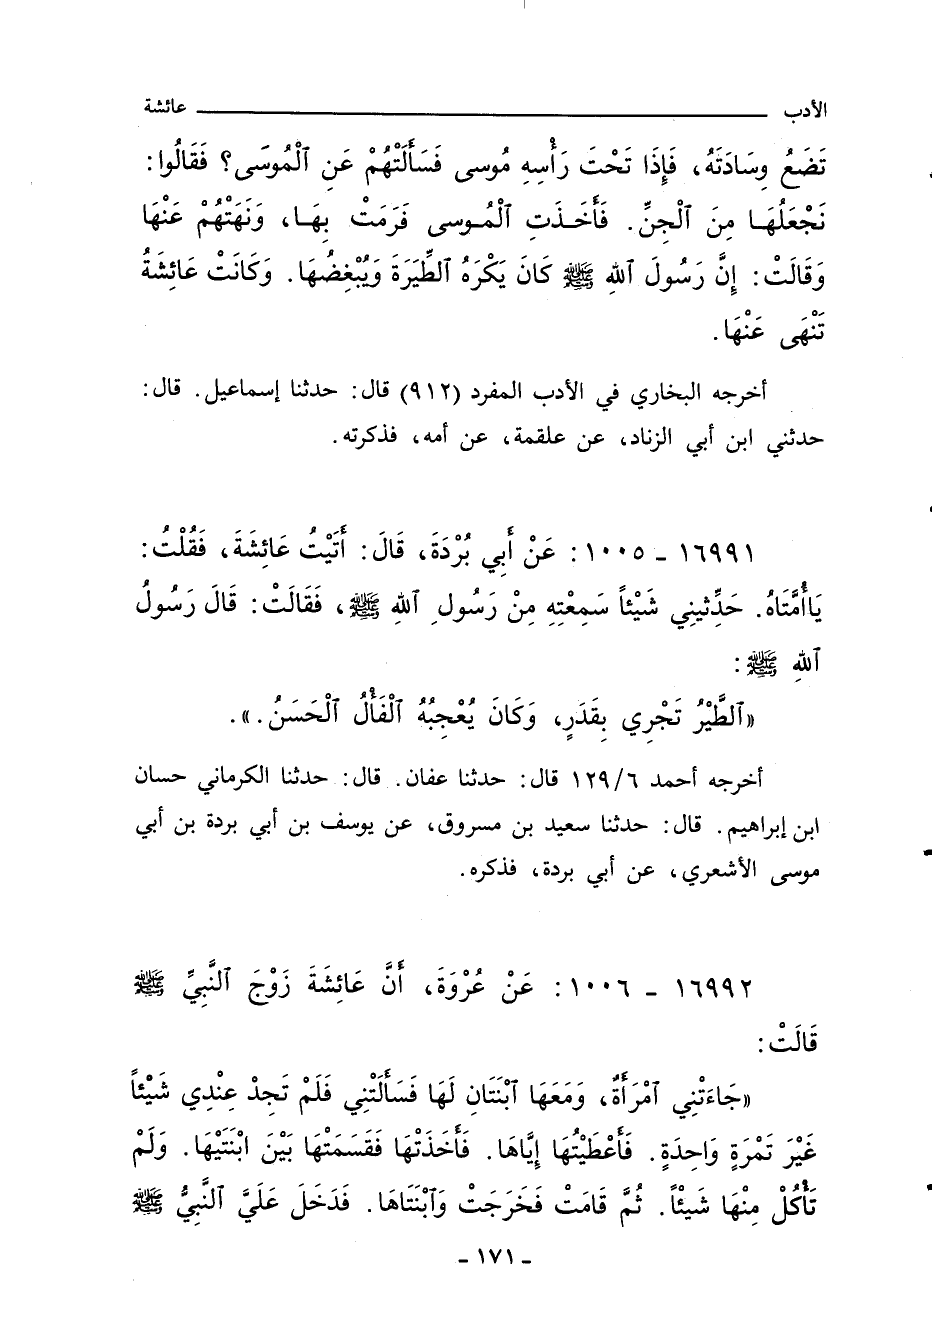 الأدب عائشة
تَضَعُ وِسَادَتَهُ، فَإِذَا تَحْتَ رَأْسِهِ مُوسى فَسَأَلَتْهُمْ عَنِ ٱلْمُوسَى؟ فَقَالُوا:
نَجْعَلُهَا مِنَ ٱلْجِنِّ. فَأَخَذَتِ ٱلْمُوسى فَرَمَتْ بِهَا، وَنَهَتْهُمْ عَنْهَا
وَقَالَتْ: إِنَّ رَسُولَ ٱللهِ ﷺ كَانَ يَكْرَهُ ٱلطِّيَرَةَ وَيُبْغِضُهَا. وَكَانَتْ عَائِشَةُ
تَنْهَى عَنْهَا.
أخرجه البخاري في الأدب المفرد (٩١٢) قال: حدثنا إسماعيل. قال:
حدثني ابن أبي الزناد، عن علقمة، عن أمه، فذكرته.
١٦٩٩١ - ١٠٠٥: عَنْ أَبِي بُرْدَةَ، قَالَ: أَتَيْتُ عَائِشَةَ، فَقُلْتُ:
يَاأُمَّتَاهُ. حَدِّثِينِي شَيْئاً سَمِعْتِهِ مِنْ رَسُولِ ٱللهِ ﷺ، فَقَالَتْ: قَالَ رَسُولُ
ٱللهِ ﷺ:
«ٱلطَّيْرُ تَجْرِي بِقَدَرٍ، وَكَانَ يُعْجِبُهُ ٱلْفَأْلُ ٱلْحَسَنُ.».
أخرجه أحمد ١٢٩/٦ قال: حدثنا عفان. قال: حدثنا الكرماني حسان
ابن إبراهيم. قال: حدثنا سعيد بن مسروق، عن يوسف بن أبي بردة بن أبي
موسى الأشعري، عن أبي بردة، فذكره.
١٦٩٩٢ - ١٠٠٦: عَنْ عُرْوَةَ، أَنَّ عَائِشَةَ زَوْجَ ٱلنَّبِيِّ ﷺ
قَالَتْ:
«جَاءَتْنِي ٱمْرَأَةٌ، وَمَعَهَا ٱبْنَتَانِ لَهَا فَسَأَلَتْنِي فَلَمْ تَجِدْ عِنْدِي شَيْئاً
غَيْرَ تَمْرَةٍ وَاحِدَةٍ. فَأَعْطَيْتُهَا إِيَّاهَا. فَأَخَذَتْهَا فَقَسَمَتْهَا بَيْنَ ابْنَتَيْهَا. وَلَمْ
تَأْكُلْ مِنْهَا شَيْئاً. ثُمَّ قَامَتْ فَخَرَجَتْ وَٱبْنَتَاهَا. فَدَخَلَ عَلَيَّ ٱلنَّبِيُّ ﷺ
- ١٧١ -